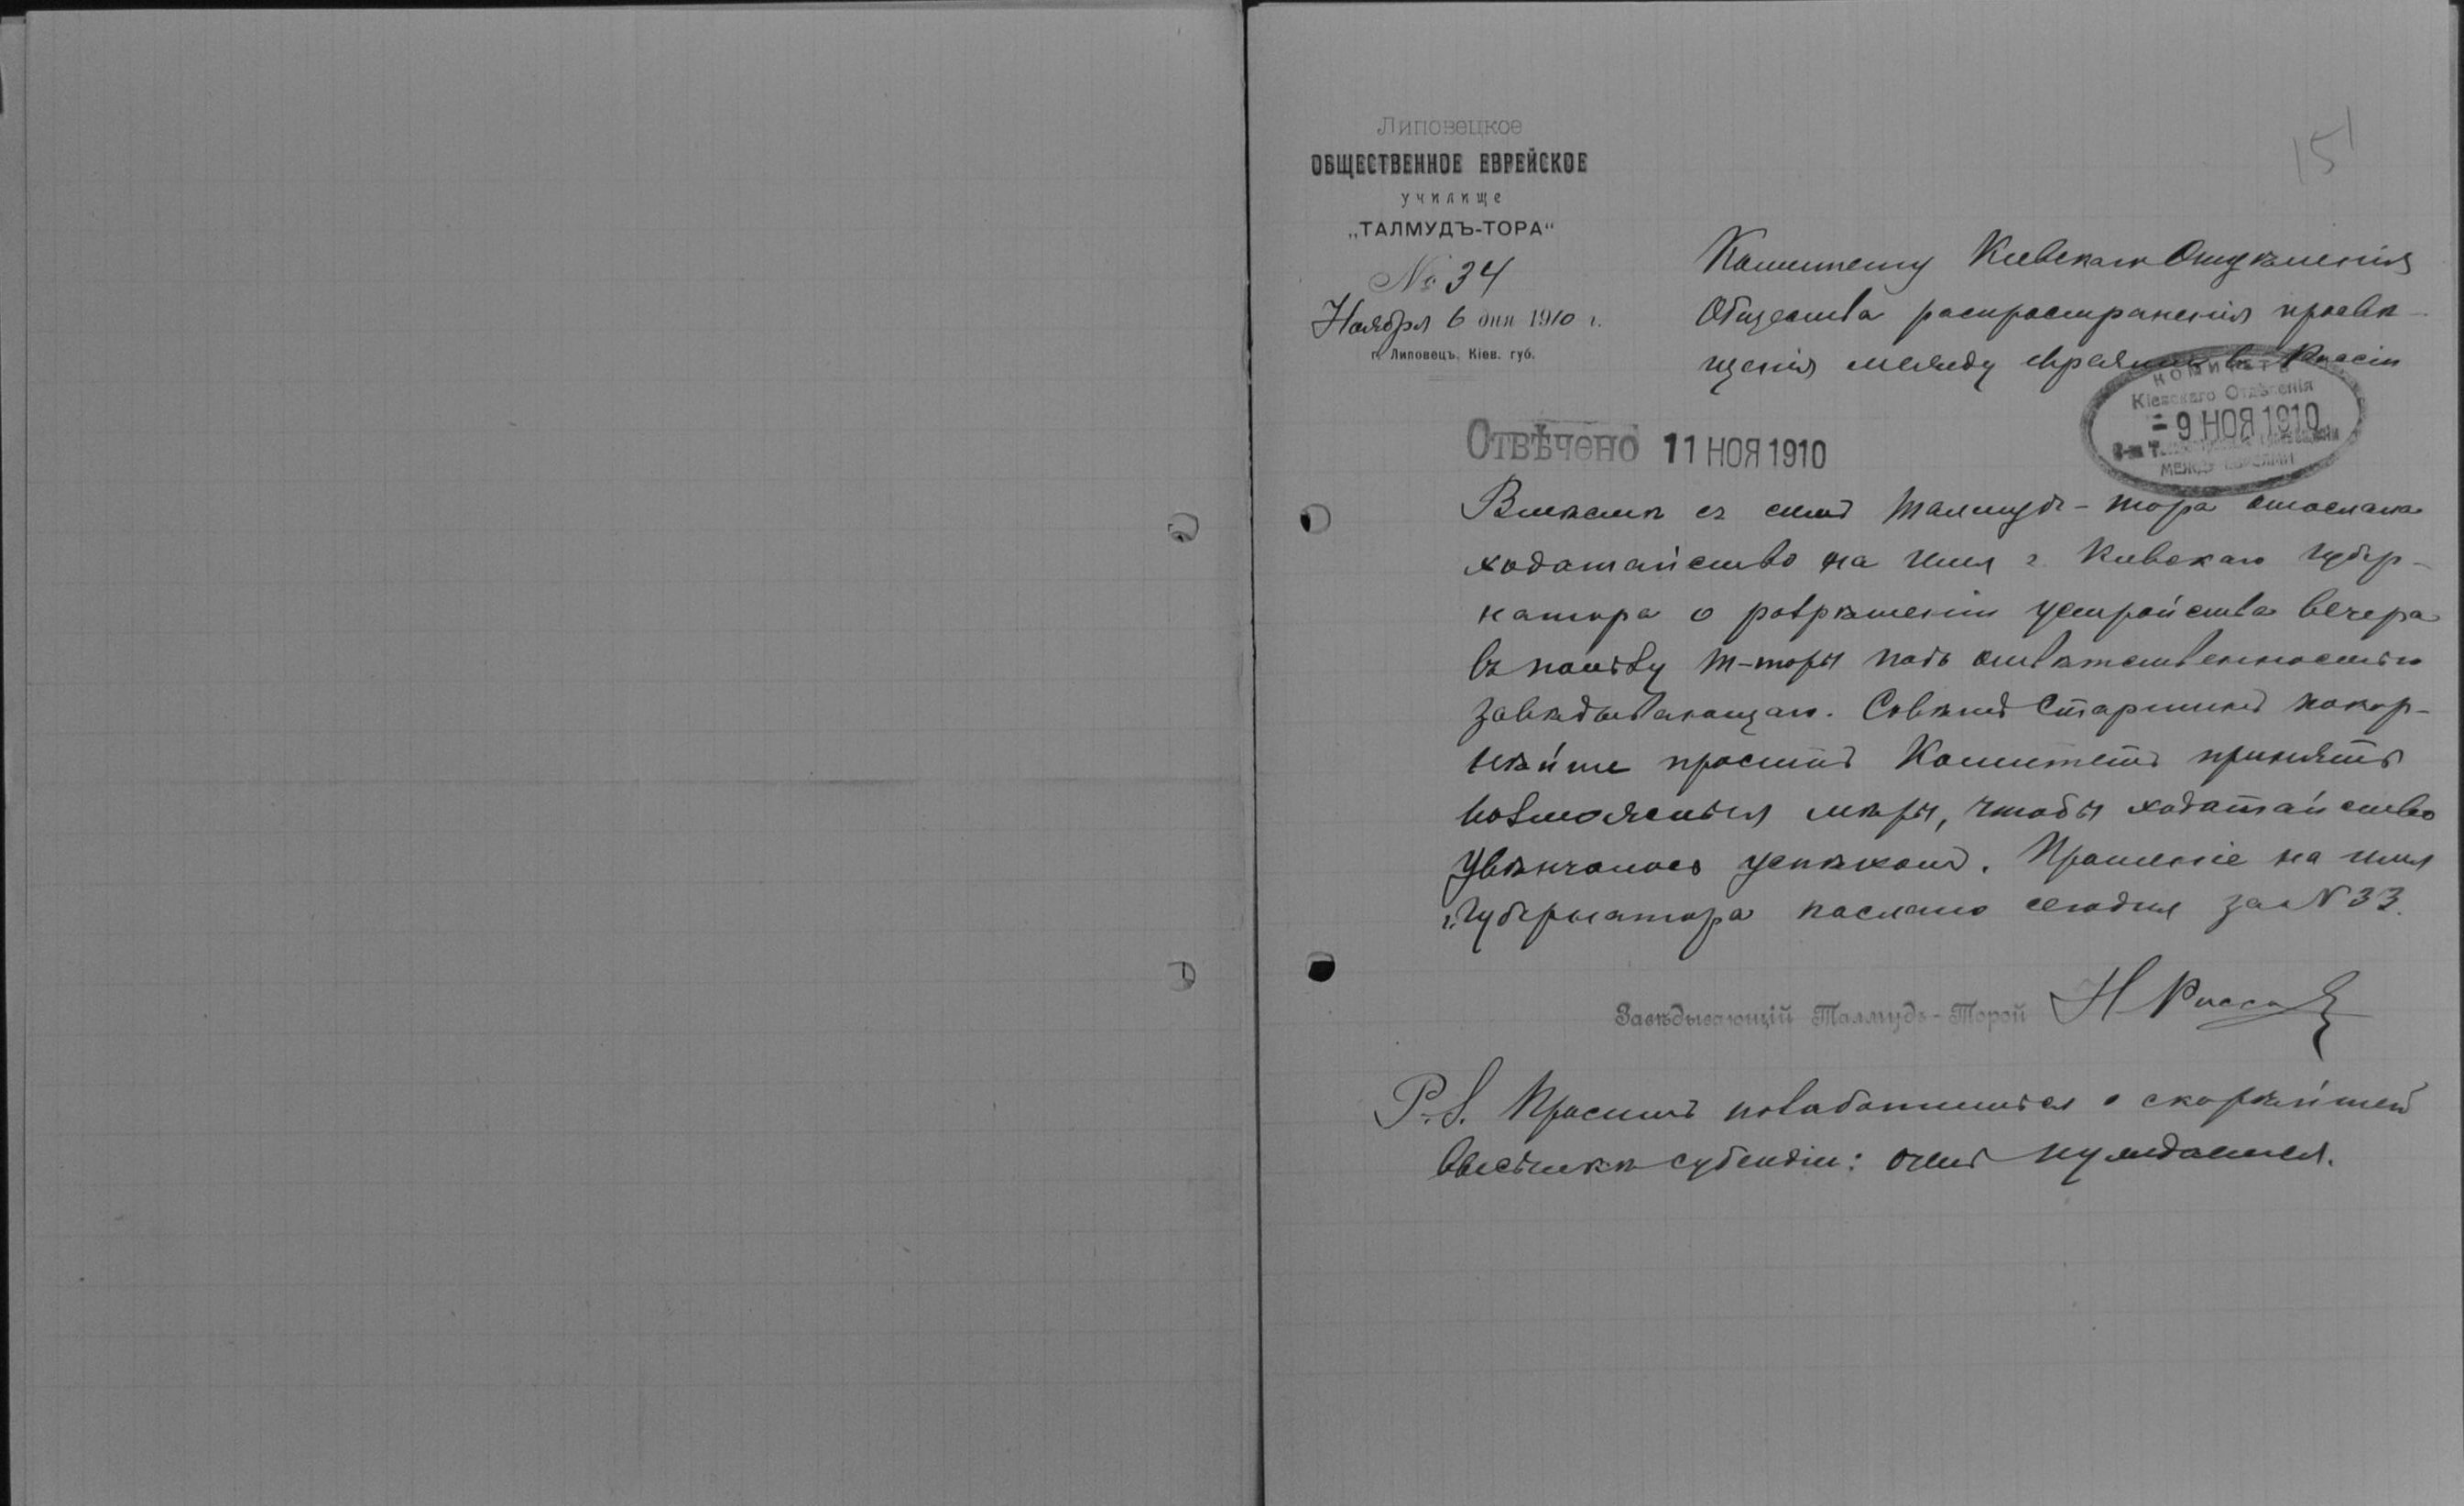 151
Липовецкое
ОБЩЕСТВЕННОЕ ЕВРЕЙСКОЕ
училище
„ТАЛМУДЪ-ТОРА“
№ 34
Ноября 6 дня 1910 г.
г. Липовецъ, Кіев. губ.
Комитету Киевскаго Отдѣленія
Общества распространенія просвѣ-
щенія между евреями въ Россіи
КОМИТЕТЪ
Кіевскаго Отдѣленія
= 9 НОЯ 1910
МЕЖДУ ЕВРЕЯМИ
Отвѣчено 11 НОЯ 1910
Вмѣстѣ съ симъ Талмудъ-тора отослала
ходатайство на имя г. Киевскаго Губер-
натора о разрѣшеніи устройства вечера
въ пользу Т-торы подъ отвѣтственностью
завѣдывающаго. Совѣтъ Старшинъ покор-
нѣйше проситъ Комитетъ принять
возможныя мѣры, чтобы ходатайство
увѣнчалось успѣхомъ. Прошеніе на имя
г. Губернатора послано сегодня за N 33.
Завѣдывающій Талмудъ-Торой Н
P.S. Просимъ позаботиться о скорѣйшей
высылкѣ субсидіи: очень нуждаемся.